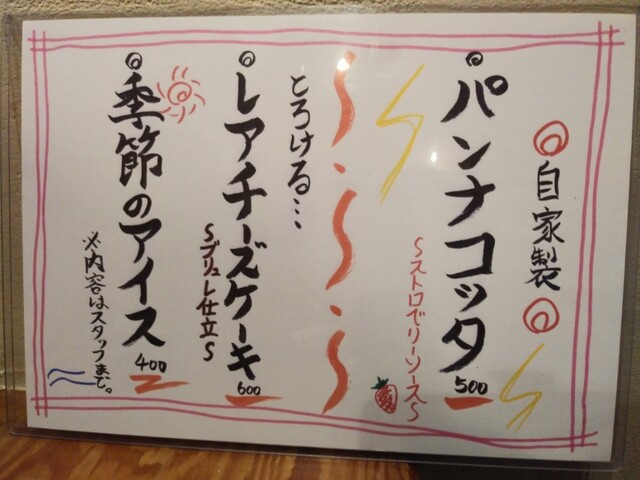 自家製
パンナコッタ
500
～ストロベリーソース～
とろける…
レアチーズケーキ
600
～ブリュレ仕立～
季節のアイス
400
※内容はスタッフまで。